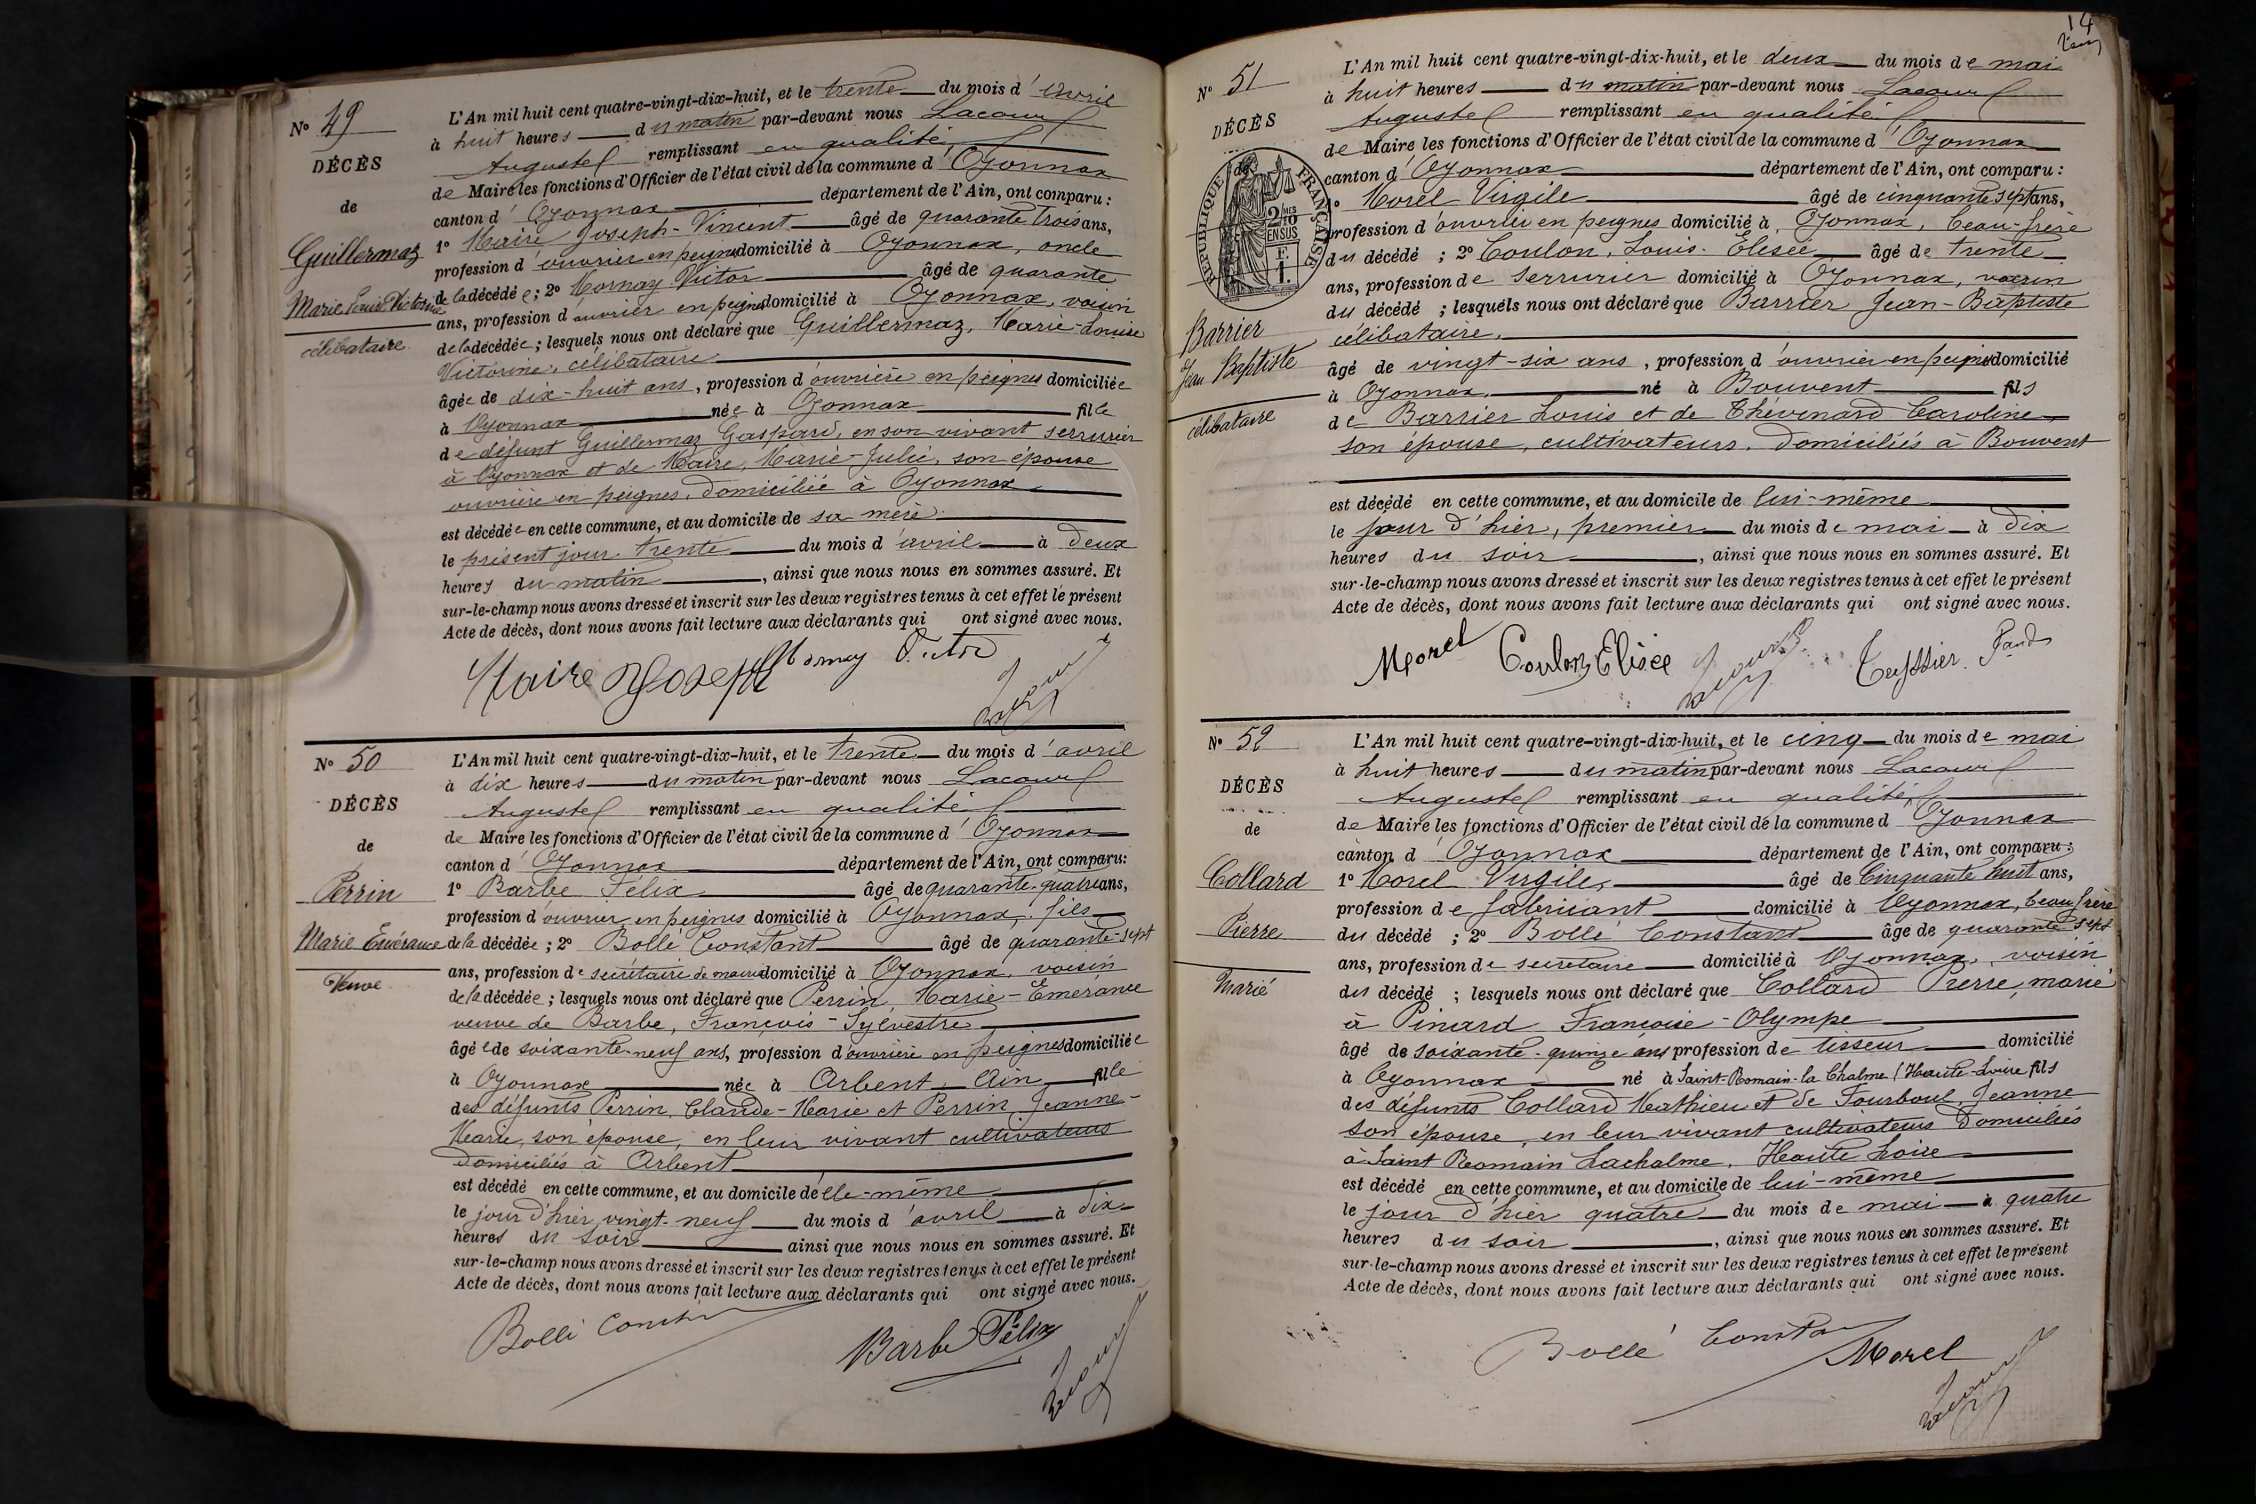 N° 49
DÉCÈS
de
Guillermaz
Marie Louise Victorine
célibataire
L'An mil huit cent quatre-vingt-dix-huit, et le trente du mois d'avril
à huit heures du matin par-devant nous Lacour
Auguste remplissant en qualité
de Maire les fonctions d'Officier de l'état civil de la commune d'Oyonnax
canton d'Oyonnax département de l'Ain, ont comparu :
1° Maire Joseph-Vincent âgé de quarante trois ans,
profession d'ouvrier en peignes domicilié à Oyonnax, oncle
de la décédée; 2° Mornay Victor âgé de quarante
ans, profession d'ouvrier en peignes domicilié à Oyonnax, voisin
de la décédée; lesquels nous ont déclaré que Guillermaz, Marie-Louise
Victorine, célibataire
âgée de dix-huit ans, profession d'ouvrière en peignes domiciliée
à Oyonnax née à Oyonnax fille
de défunt Guillermaz Gaspard, en son vivant serrurier
à Oyonnax et de Maire, Marie-Julie, son épouse
ouvrière en peignes, domiciliée à Oyonnax
est décédée en cette commune, et au domicile de sa mère
le présent jour trente du mois d'avril à deux
heures du matin, ainsi que nous nous en sommes assuré. Et
sur-le-champ nous avons dressé et inscrit sur les deux registres tenus à cet effet le présent
Acte de décès, dont nous avons fait lecture aux déclarants qui ont signé avec nous.
Maire Joseph Mornay Victor
Lacour
N° 50
DÉCÈS
de
Perrin
Marie Emérance
Veuve
L'An mil huit cent quatre-vingt-dix-huit, et le trente du mois d'avril
à dix heures du matin par-devant nous Lacour
Auguste remplissant en qualité
de Maire les fonctions d'Officier de l'état civil de la commune d'Oyonnax
canton d'Oyonnax département de l'Ain, ont comparu:
1° Barbe Félix âgé de quarante-quatre ans,
profession d'ouvrier en peignes domicilié à Oyonnax, fils
de la décédée; 2° Bollé Constant âgé de quarante-sept
ans, profession de secrétaire de mairie domicilié à Oyonnax, voisin
de la décédée; lesquels nous ont déclaré que Perrin, Marie-Emérance
veuve de Barbe, François-Sylvestre
âgée de soixante-neuf ans, profession d'ouvrière en peignes domiciliée
à Oyonnax née à Arbent, Ain fille
des défunts Perrin, Claude-Marie et Perrin Jeanne-
Marie, son épouse, en leur vivant cultivateurs
domiciliés à Arbent
est décédé en cette commune, et au domicile d'elle-même
le jour d'hier vingt-neuf du mois d'avril à dix
heures du soir ainsi que nous nous en sommes assuré. Et
sur-le-champ nous avons dressé et inscrit sur les deux registres tenus à cet effet le présent
Acte de décès, dont nous avons fait lecture aux déclarants qui ont signé avec nous.
Bollé Constant
Barbe Félix
Lacour
14
N° 51
DÉCÈS
de
RÉPUBLIQUE FRANÇAISE
2 10MES
EN SUS
Barrier
Jean Baptiste
célibataire
L'An mil huit cent quatre-vingt-dix-huit, et le deux du mois de mai
à huit heures du matin par-devant nous Lacour
Auguste remplissant en qualité
de Maire les fonctions d'Officier de l'état civil de la commune d'Oyonnax
canton d'Oyonnax département de l'Ain, ont comparu :
1° Morel Virgile âgé de cinquante sept ans,
profession d'ouvrier en peignes domicilié à Oyonnax, beau-frère
du décédé ; 2° Coulon, Louis-Elisée âgé de trente
ans, profession de serrurier domicilié à Oyonnax, voisin
du décédé ; lesquels nous ont déclaré que Barrier Jean-Baptiste
célibataire,
âgé de vingt-six ans, profession d'ouvrier en peignes domicilié
à Oyonnax, né à Bouvent fils
de Barrier Louis et de Thévenard Caroline
son épouse, cultivateurs, domiciliés à Bouvent
est décédé en cette commune, et au domicile de lui-même
le jour d'hier, premier du mois de mai à dix
heures du soir, ainsi que nous nous en sommes assuré. Et
sur-le-champ nous avons dressé et inscrit sur les deux registres tenus à cet effet le présent
Acte de décès, dont nous avons fait lecture aux déclarants qui ont signé avec nous.
Morel Coulon Elisée Lacour
N° 52
DÉCÈS
de
Collard
Pierre
Marié
L'An mil huit cent quatre-vingt-dix-huit, et le cinq du mois de mai
à huit heures du matin par-devant nous Lacour
Auguste remplissant en qualité
de Maire les fonctions d'Officier de l'état civil de la commune d'Oyonnax
canton d'Oyonnax département de l'Ain, ont comparu :
1° Morel Virgile, âgé de Cinquante huit ans,
profession de fabricant domicilié à Oyonnax, beau frère
du décédé ; 2° Bollé Constant âgé de quarante sept
ans, profession de secrétaire domicilié à Oyonnax, voisin
du décédé ; lesquels nous ont déclaré que Collard Pierre, marié
à Pinard Françoise-Olympe
âgé de soixante-quinze ans profession de tisseur domicilié
à Oyonnax né à Saint-Romain-la Chalme (Haute-Loire fils
des défunts Collard Mathieu et de Fourboul, Jeanne
son épouse, en leur vivant cultivateurs domiciliés
à Saint Romain Lachalme, Haute Loire
est décédé en cette commune, et au domicile de lui-même
le jour d'hier quatre du mois de mai à quatre
heures du soir, ainsi que nous nous en sommes assuré. Et
sur-le-champ nous avons dressé et inscrit sur les deux registres tenus à cet effet le présent
Acte de décès, dont nous avons fait lecture aux déclarants qui ont signé avec nous.
Bollé Constant
Morel
Lacour